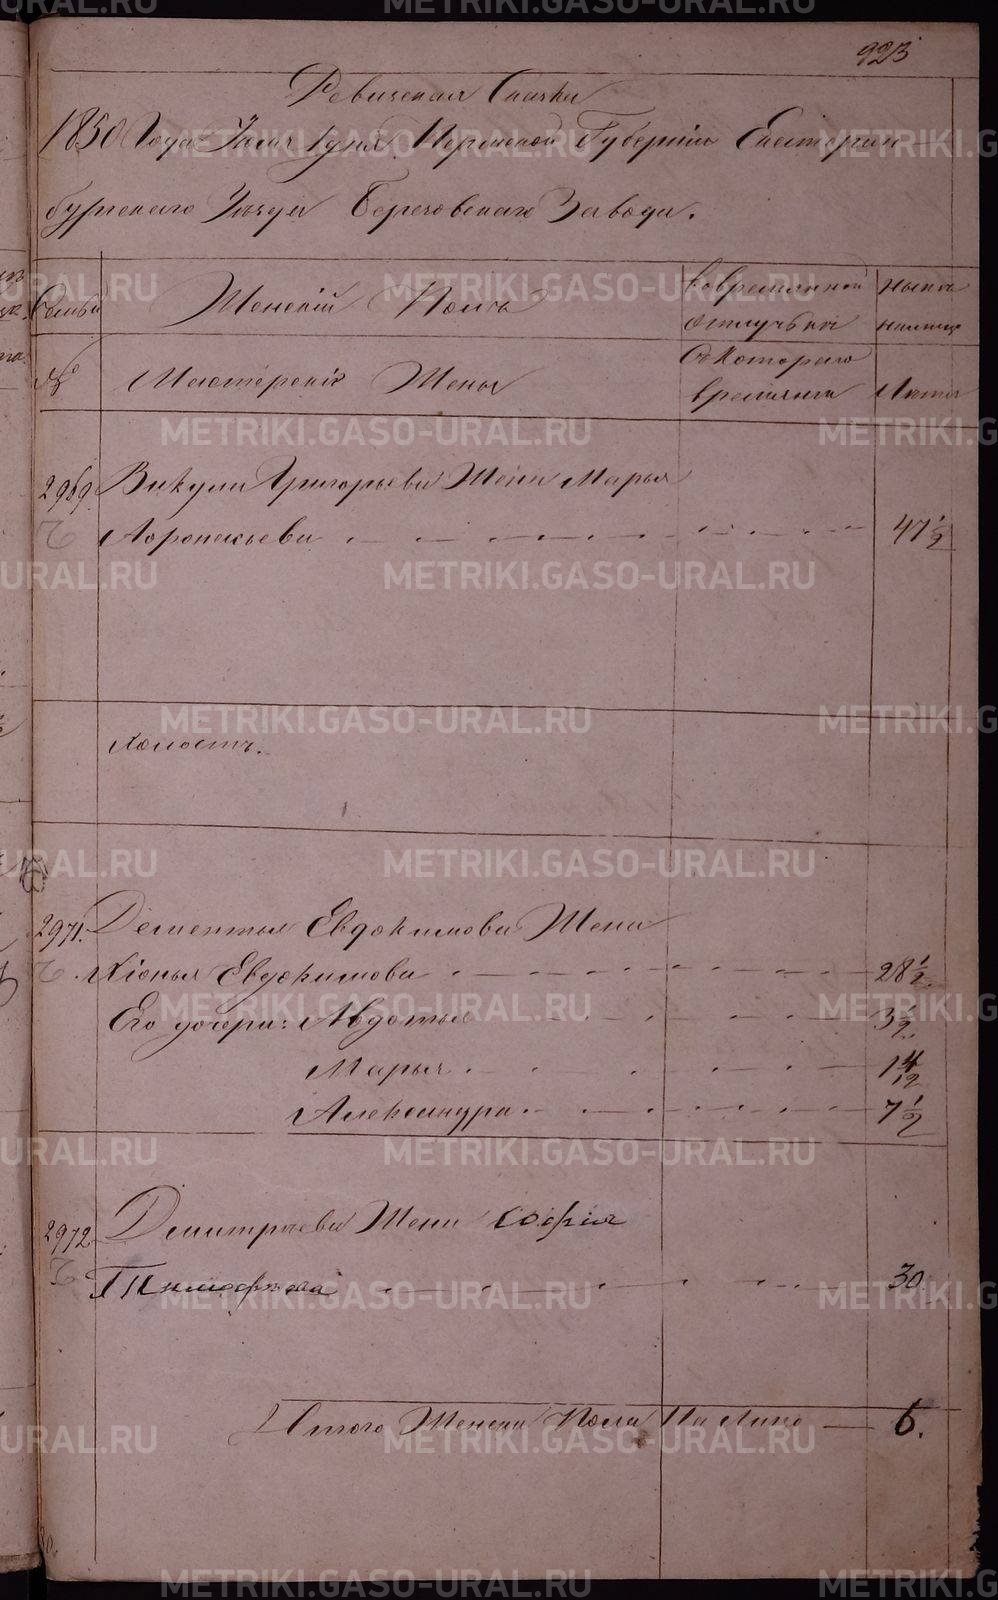 923
Ревизская Сказка
1850 Года Июня 1 дня Пермской Губернии Екатерин
бургского Уезда Березовского Завода.
Семьи Женский Полъ во временной ныне
отлучке на лицо
№ Мастерския Жены съ котораго
времяни Лета
2969. Викулы Григорьева Жена Марья
47 1/2
Холостъ.
2971. Дементья Евдокимова Жена
Хіонья Евдокимова 28 1/2
Его дочери: Авдотья 3 1/2
Марья 1 4/12
Александра 7 1/2
2972 Дмитріева Жена Софія
Тимофеева 30
Итого Женска Пола На Лицо 6.
METRIKI.GASO-URAL.RU